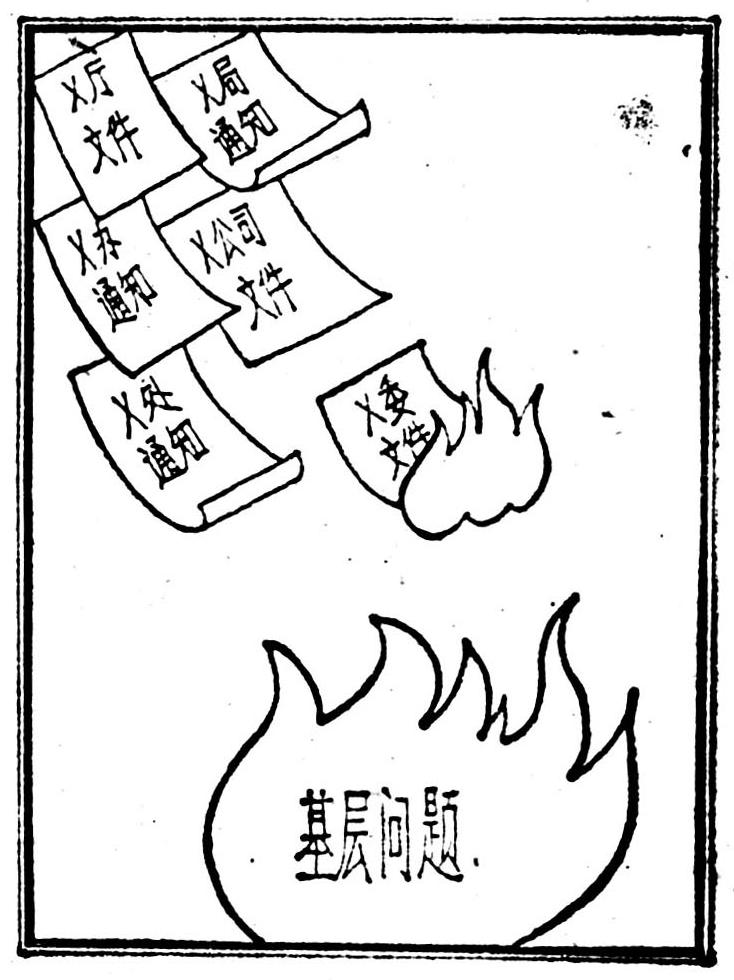 X厅
文件
X局
通知
X办
通知
X公司
文件
X处
通知
X委
文件
基层问题